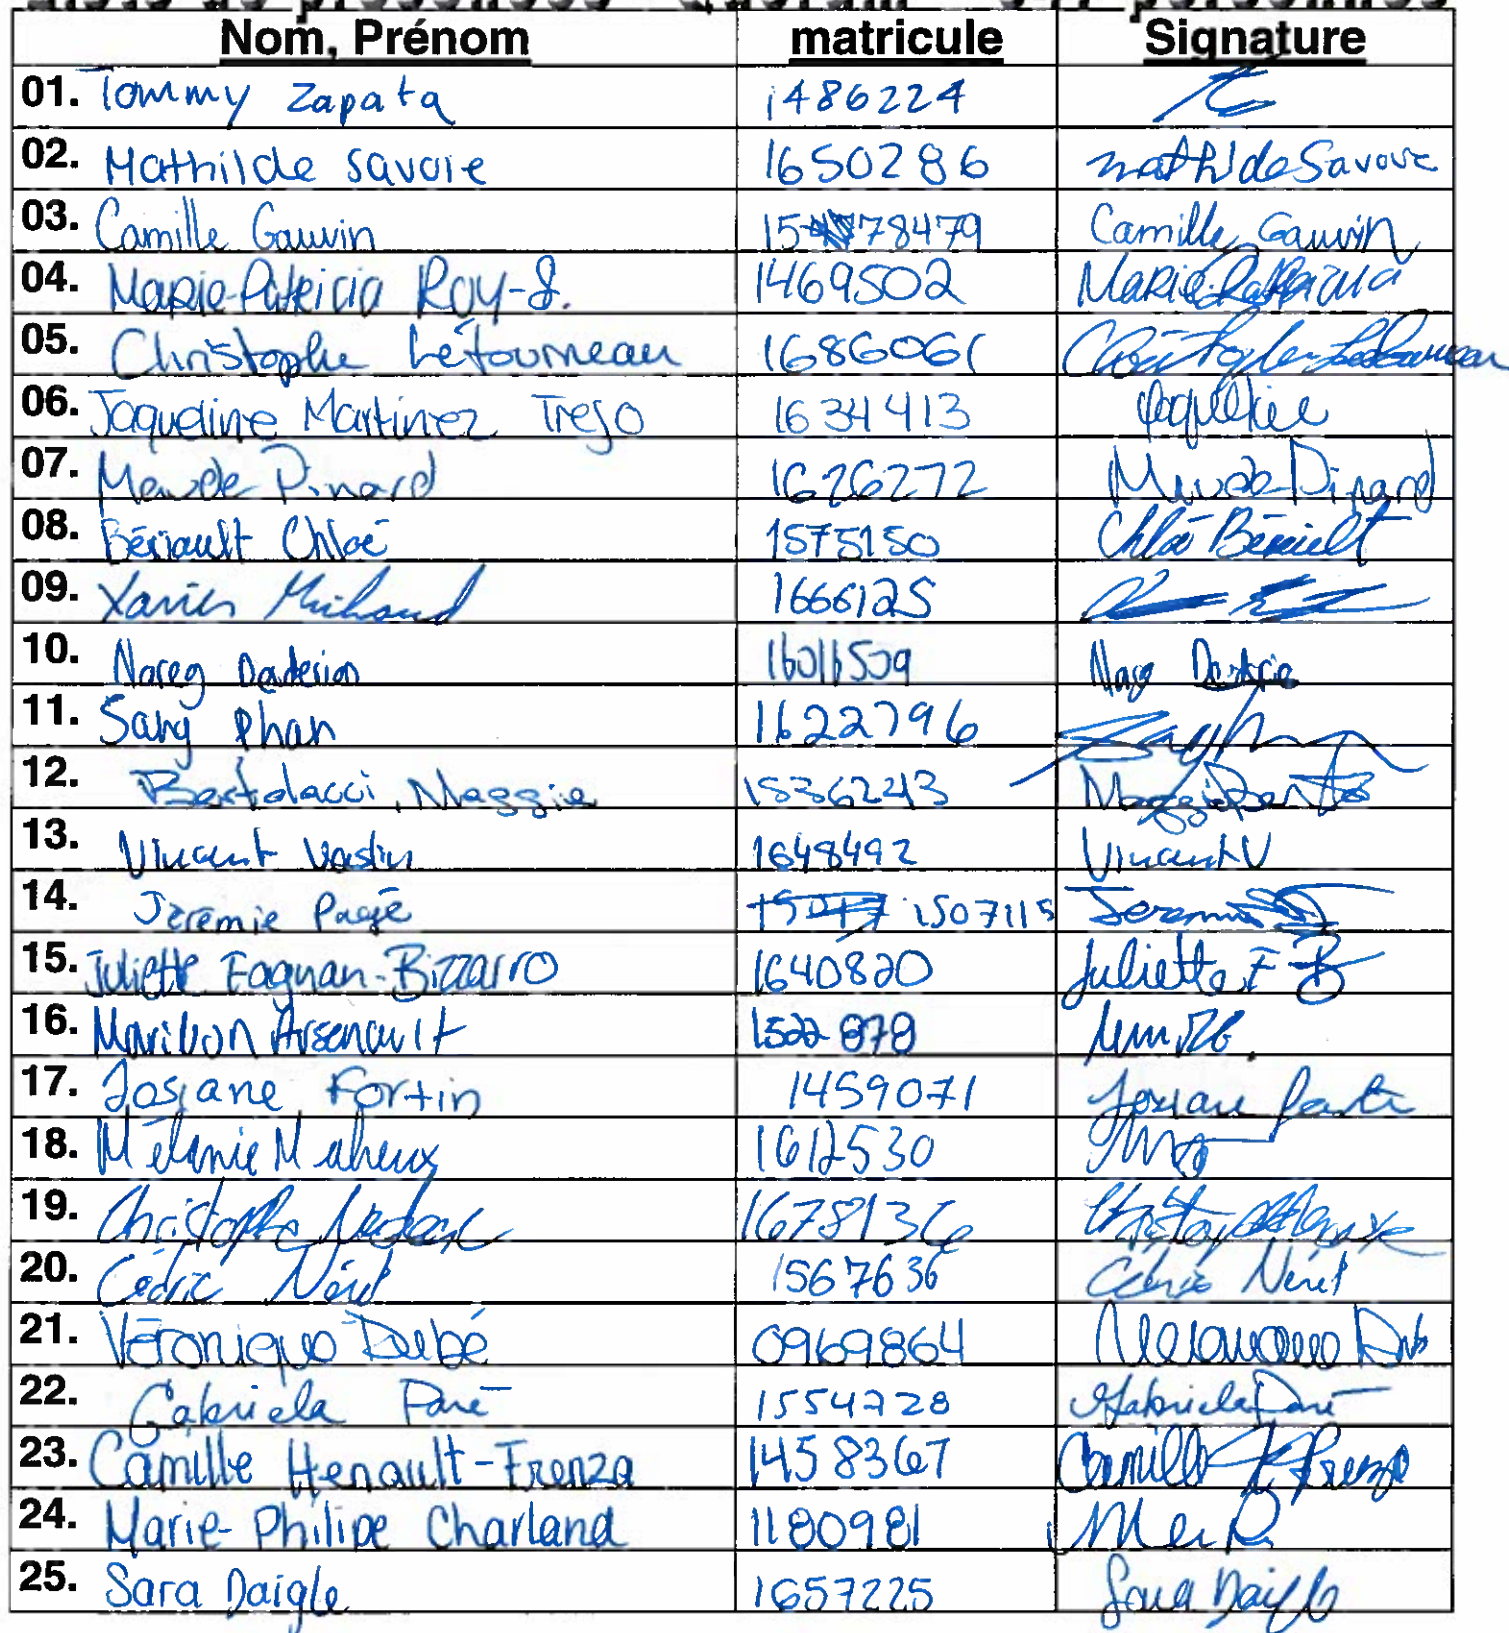 Nom, Prénom matricule Signature
01. Tommy Zapata 1486224
02. Mathilde Savoie 1650286 Mathilde Savoie
03. Camille Gauvin 15 78479 Camille Gauvin
04. Marie-Patricia Roy-S. 1469502 Marie-Patricia
05. Christophe Létourneau 1686061 Christophe Létourneau
06. Jaqueline Martinez Trejo 1634413 Jaqueline
07. Maude Pinard 1626272 Maude Pinard
08. Bériault Chloé 1575150 Chloé Bériault
09. Xavier Michaud 1666125
10. Nareg 1601509
11. Sang Phan 1622796
12. Bertolacci, Maggie 1536243 Maggie
13. Vincent 1648492 Vincent V
14. Jérémie Pagé 1507115
15. Juliette Fagnan-Bizzarro 1640820 Juliette F B
16. Marilyon Arsenault 1522878
17. Josiane Fortin 1459071 Josiane Fortin
18. Mélanie Maheux 1612530
19. Christophe 1678136
20. Cédric Néret 1567636 Cédric Néret
21. Véronique Dubé 0969864
22. Gabriela Paré 1554728 Gabriela Paré
23. Camille Henault-Frenza 1458367 Camille H Frenza
24. Marie-Philipe Charland 1180981
25. Sara Daigle 1657225 Sara Daigle